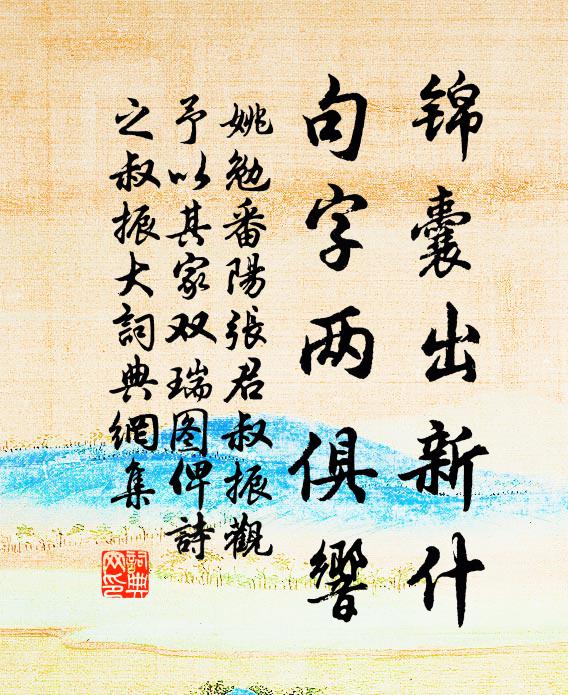 锦囊出新什
句字两俱響
姚勉番陽張君叔振觀
予以其家双瑞图俾詩
之叔振大詞典網集
詞典
网印